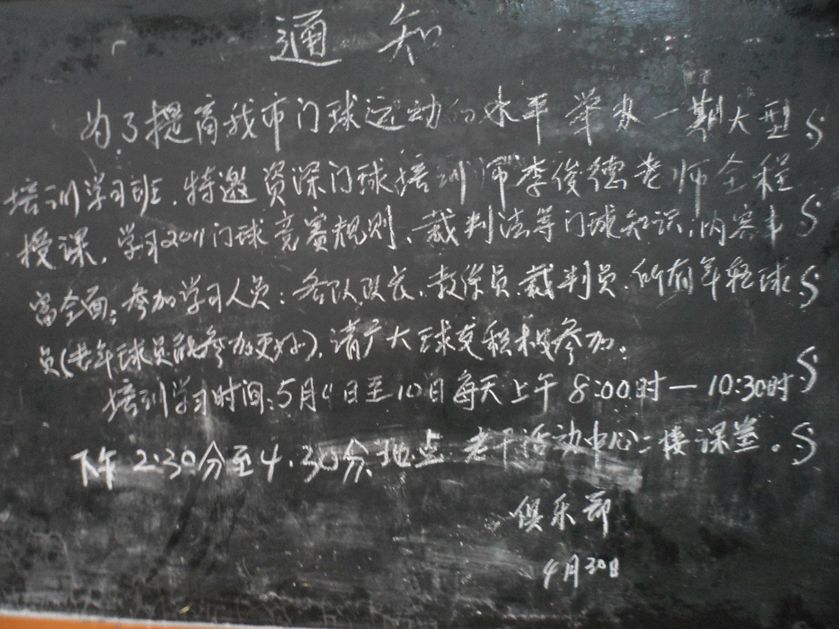 通知
为了提高我市门球运动的水平举办一期大型
培训学习班,特邀资深门球培训师李俊德老师全程
授课,学习2011门球竞赛规则、裁判法等门球知识,内容丰
富全面;参加学习人员:各队队长、教练员、裁判员、所有年轻球
员(老年球员能参加更好),请广大球友积极参加;
培训学习时间:5月4日至10日每天上午8:00时—10:30时
下午2:30分至4.30分、地点:老干活动中心二楼课堂。
俱乐部
4月30日